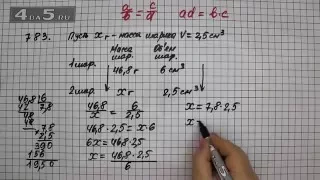 4DA5.RU
a/b = c/d  ad = b·c
783. Пусть x г - масса шарика V = 2,5 см³
Масса шар. Объём шар.
1 шар. 46,8 г 6 см³
2 шар. x г 2,5 см³
46,8/x = 6/2,5
46,8 · 2,5 = x · 6
6x = 46,8 · 2,5
x = 46,8 · 2,5 / 6
x = 7,8 · 2,5
x
46,8 6
42 7,8
48
48
7,8
2,5
390
156
19,50